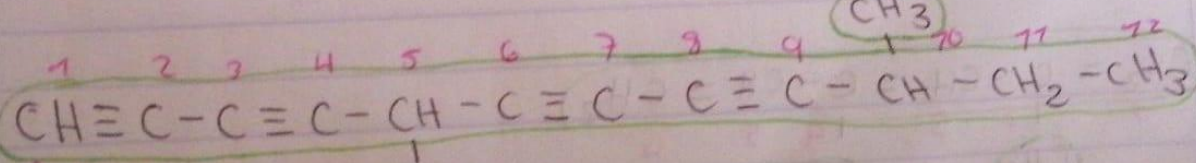 CH3
1 2 3 4 5 6 7 8 9 10 11 12
CH≡C-C≡C-CH-C≡C-C≡C-CH-CH2-CH3